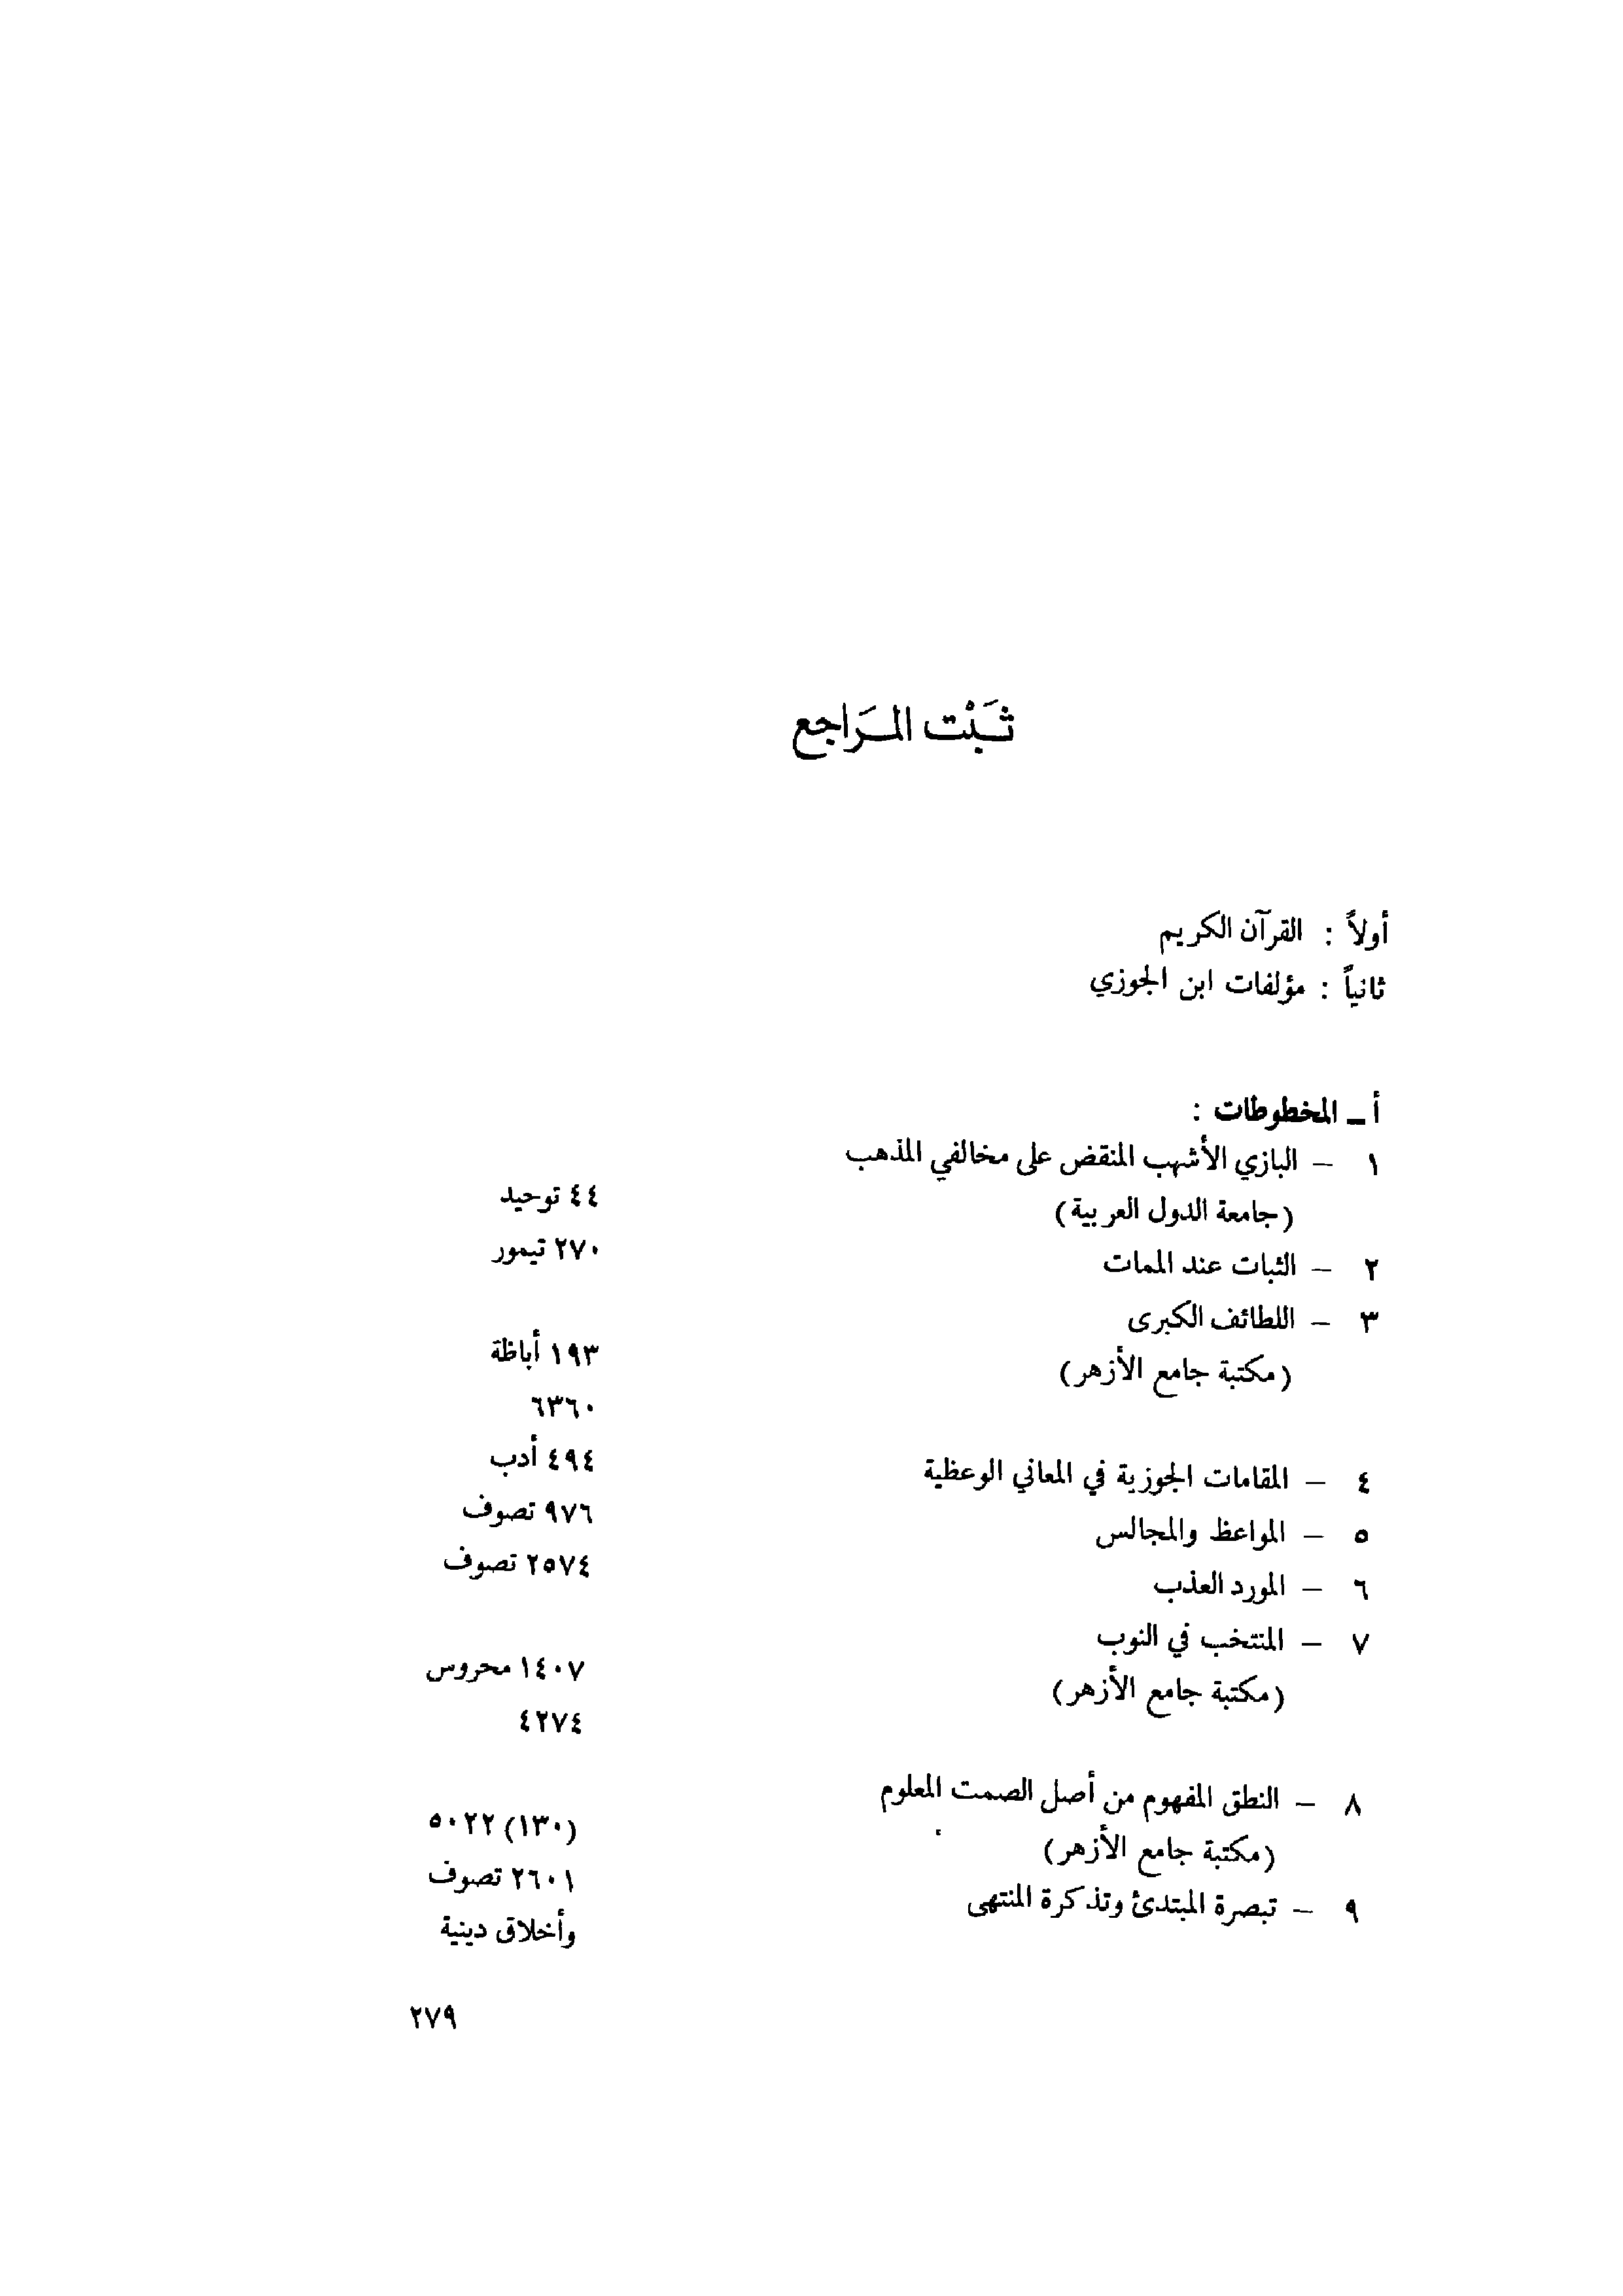 ثَبْت المَراجع
أولاً : القرآن الكريم
ثانياً : مؤلفات ابن الجوزي
أ ـ المخطوطات :
١ – البازي الأشهب المنقض على مخالفي المذهب
(جامعة الدول العربية) ٤٤ توحيد
٢ – الثبات عند الممات ٢٧٠ تيمور
٣ – اللطائف الكبرى
(مكتبة جامع الأزهر) ١٩٣ أباظة
٦٣٦٠
٤ – المقامات الجوزية في المعاني الوعظية ٤٩٤ أدب
٥ – المواعظ والمجالس ٩٧٦ تصوف
٦ – المورد العذب ٢٥٧٤ تصوف
٧ – المنتخب في النوب
(مكتبة جامع الأزهر) ١٤٠٧ محروس
٤٢٧٤
٨ – النطق المفهوم من أصل الصمت المعلوم
(مكتبة جامع الأزهر) (١٣٠) ٥٠٢٢
٩ – تبصرة المبتدئ وتذكرة المنتهى ٢٦٠١ تصوف
وأخلاق دينية
٢٧٩